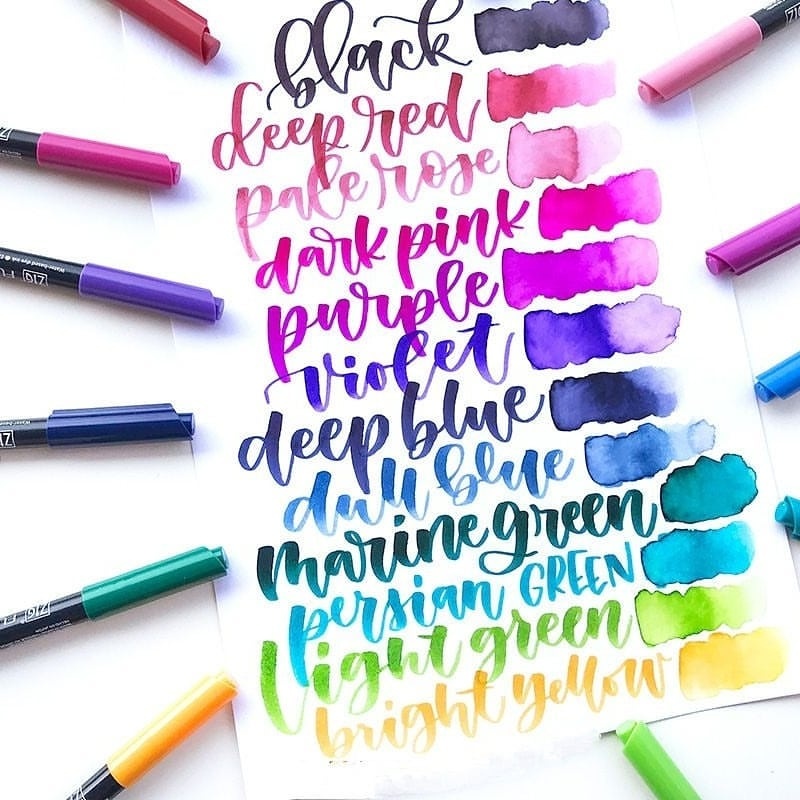 black
deep red
pale rose
dark pink
purple
violet
deep blue
dull blue
marine green
persian GREEN
light green
bright yellow
ZIG
ZIG
Water-based dye ink
ZIG